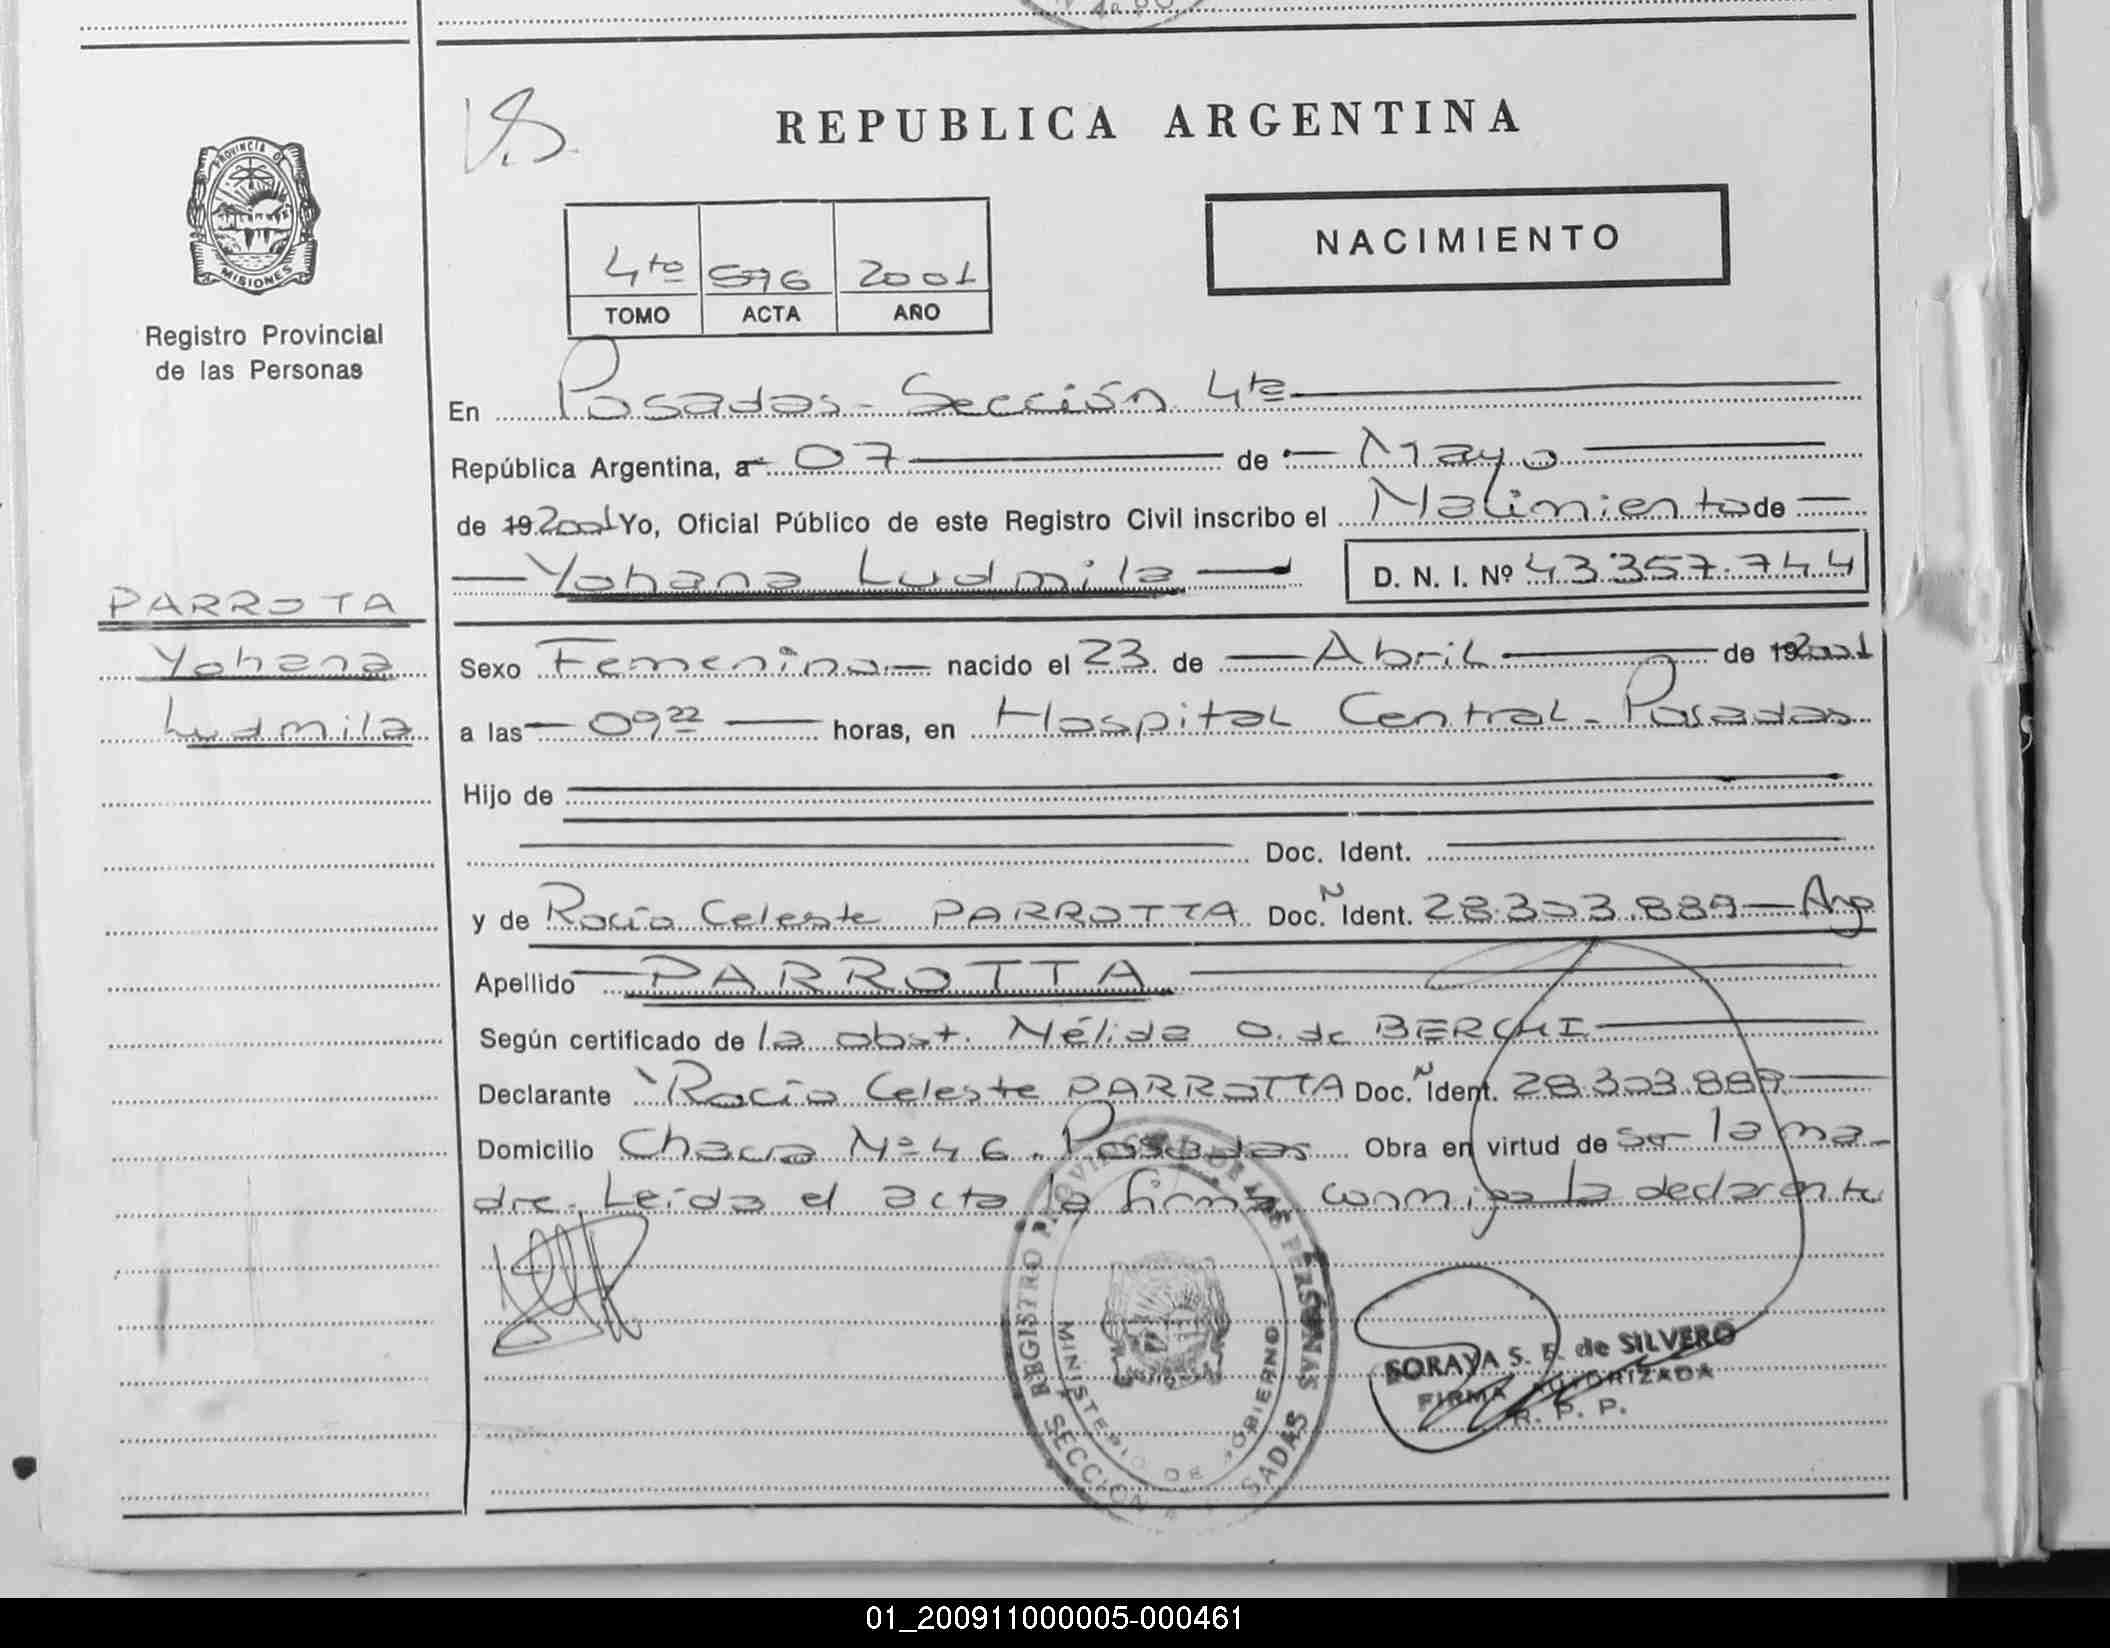 REPUBLICA ARGENTINA
PROVINCIA DE
MISIONES
Registro Provincial
de las Personas
NACIMIENTO
4to 596 2001
TOMO ACTA AÑO
En Posadas - Sección 4ta
República Argentina, a 07 de Mayo
de 19 2001 Yo, Oficial Público de este Registro Civil inscribo el Nacimiento de
Yohana Ludmila D. N. I. Nº 43.357.744
PARROTA
Yohana
Ludmila
Sexo Femenino nacido el 23 de Abril de 19 2001
a las 09 22 horas, en Hospital Central - Posadas
Hijo de
Doc. Ident.
y de Rocío Celeste PARROTTA Doc. N Ident. 28.303.889 - Arg
Apellido PARROTTA
Según certificado de la obst. Nélida O. de BERCHI
Declarante Rocío Celeste PARROTTA Doc. N Ident. 28.303.889
Domicilio Chacra Nº 46. Posadas Obra en virtud de ser la ma-
dre. Leída el acta la firma conmigo la declarante
REGISTRO PROVINCIAL DE LAS PERSONAS
MINISTERIO DE GOBIERNO
SECCION POSADAS
SORAYA S. E. de SILVERO
FIRMA AUTORIZADA
R. P. P.
01_200911000005-000461